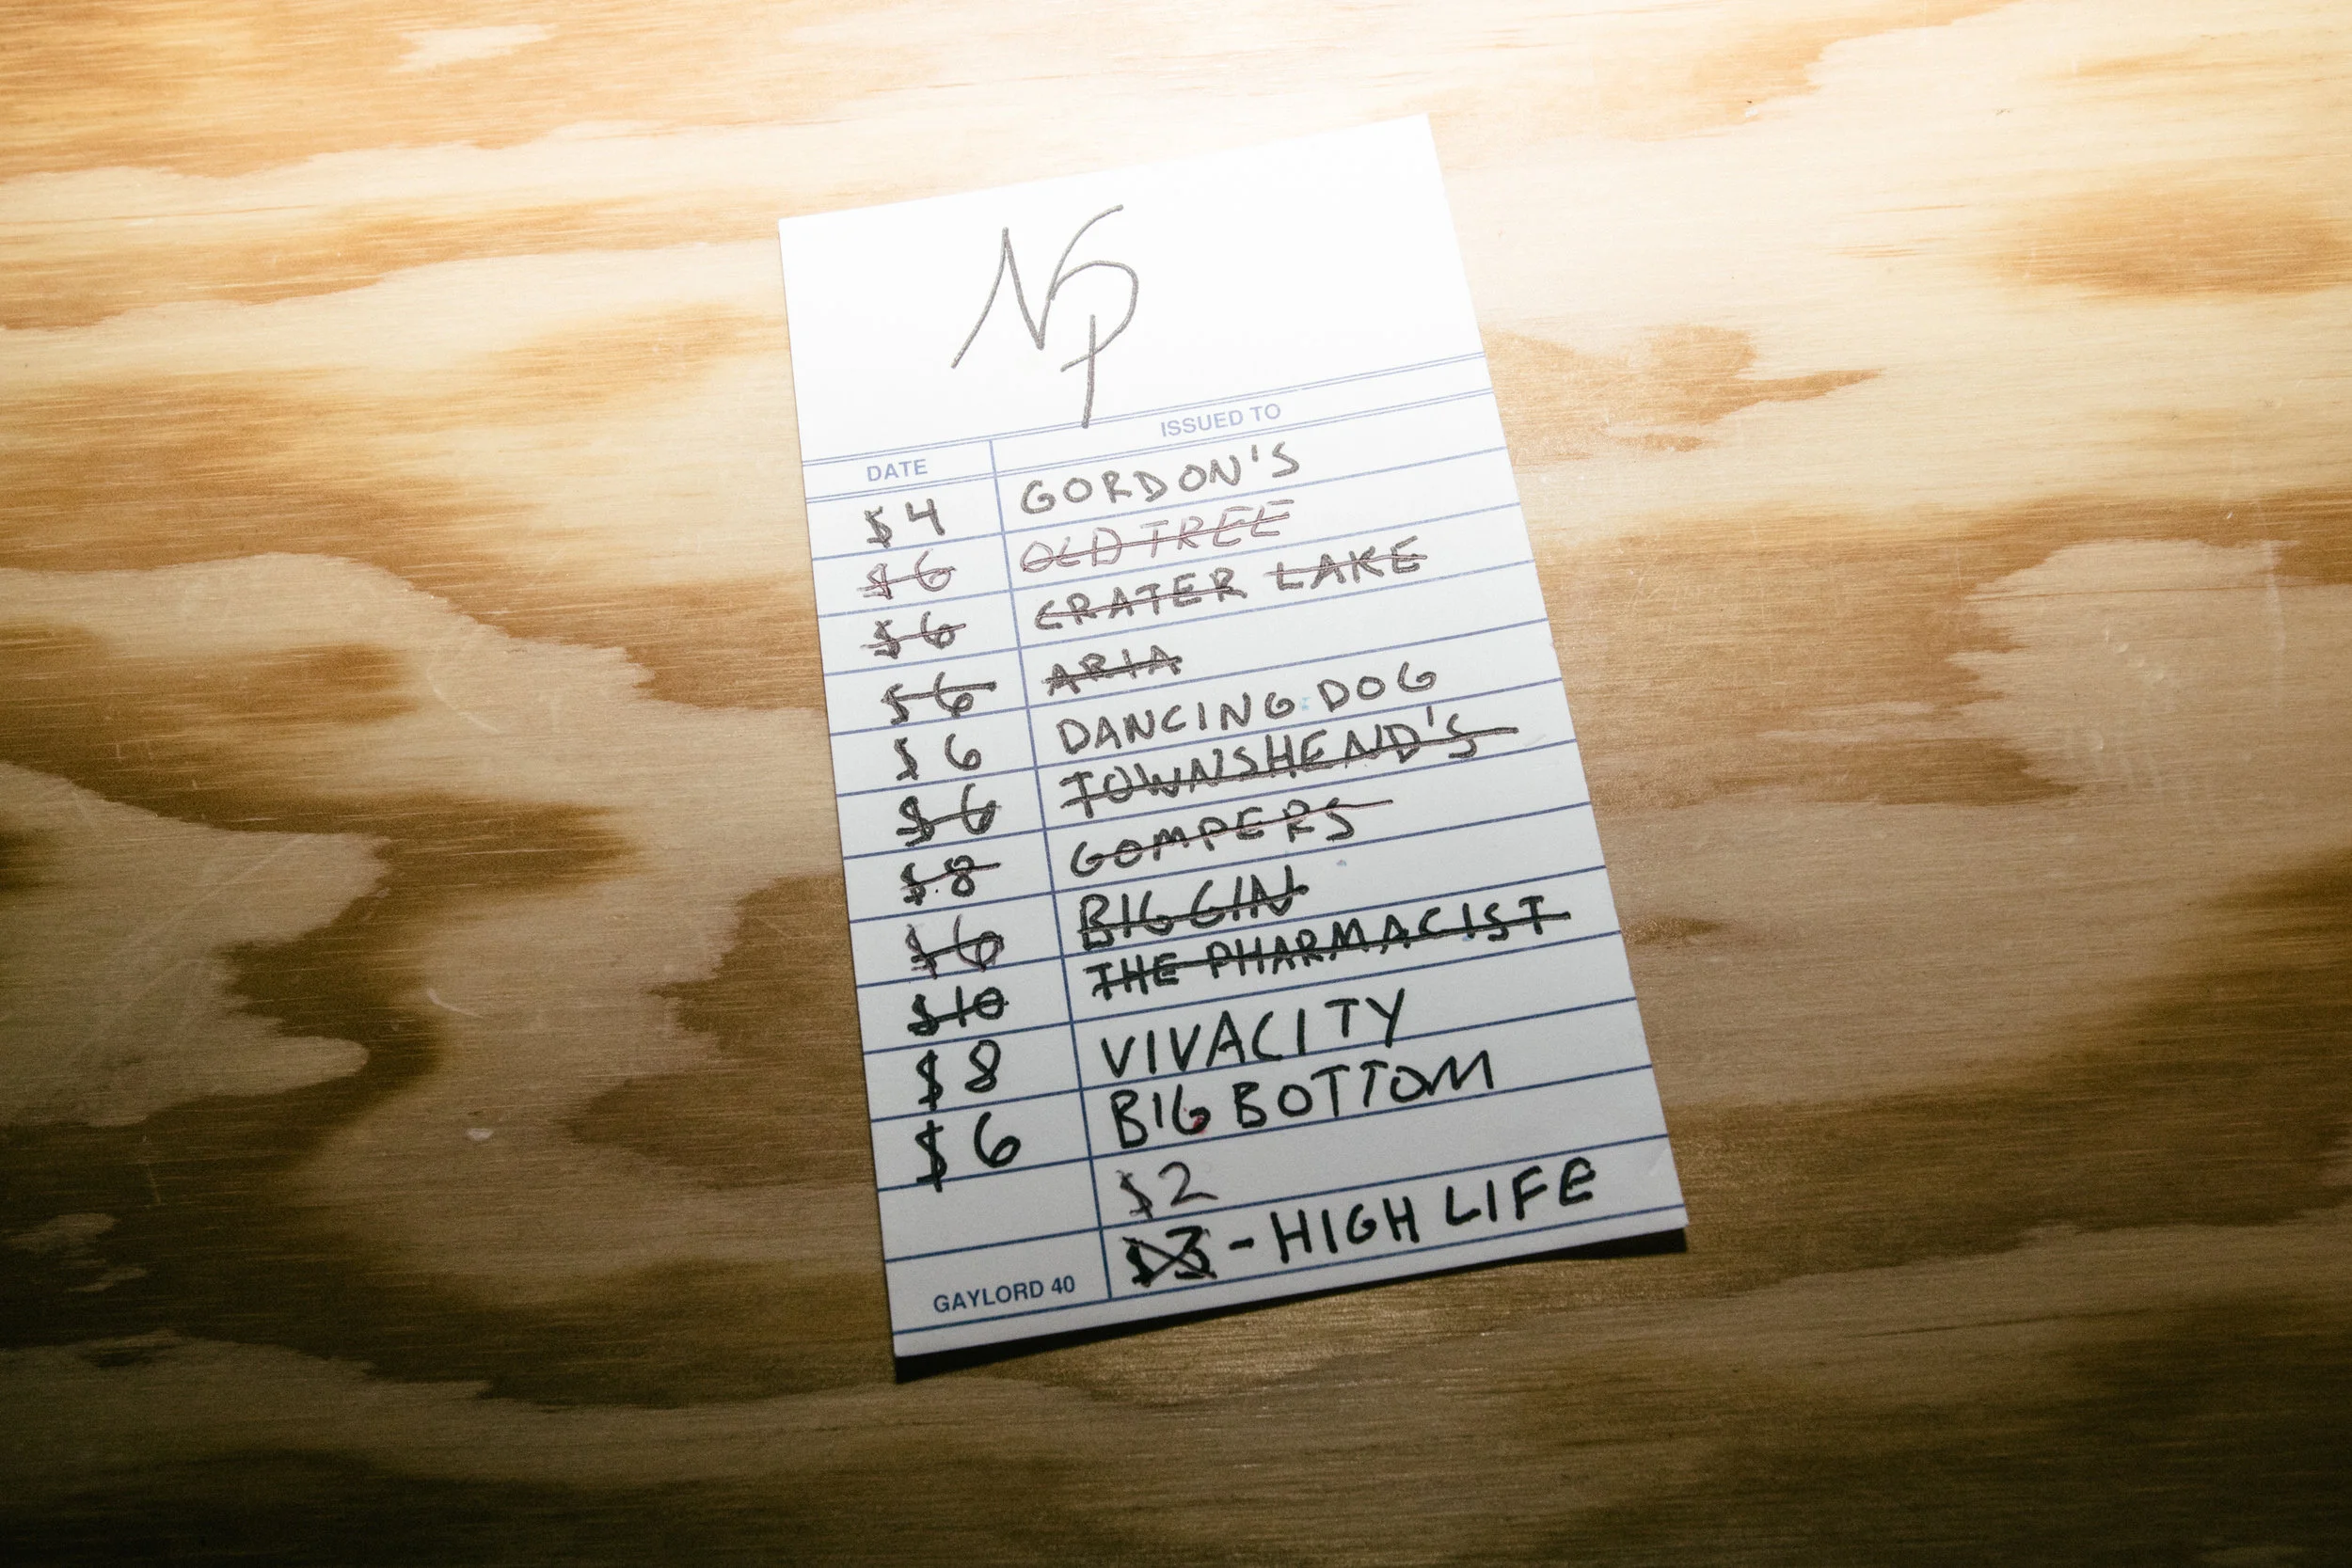 NP
DATE ISSUED TO
$4 GORDON'S
$6 OLD TREE
$6 CRATER LAKE
$6 ARIA
$6 DANCING DOG
$6 TOWNSHEND'S
$8 GOMPERS
$6 BIG GIN
$10 THE PHARMACIST
$8 VIVACITY
$6 BIG BOTTOM
$2
$3 - HIGH LIFE
GAYLORD 40